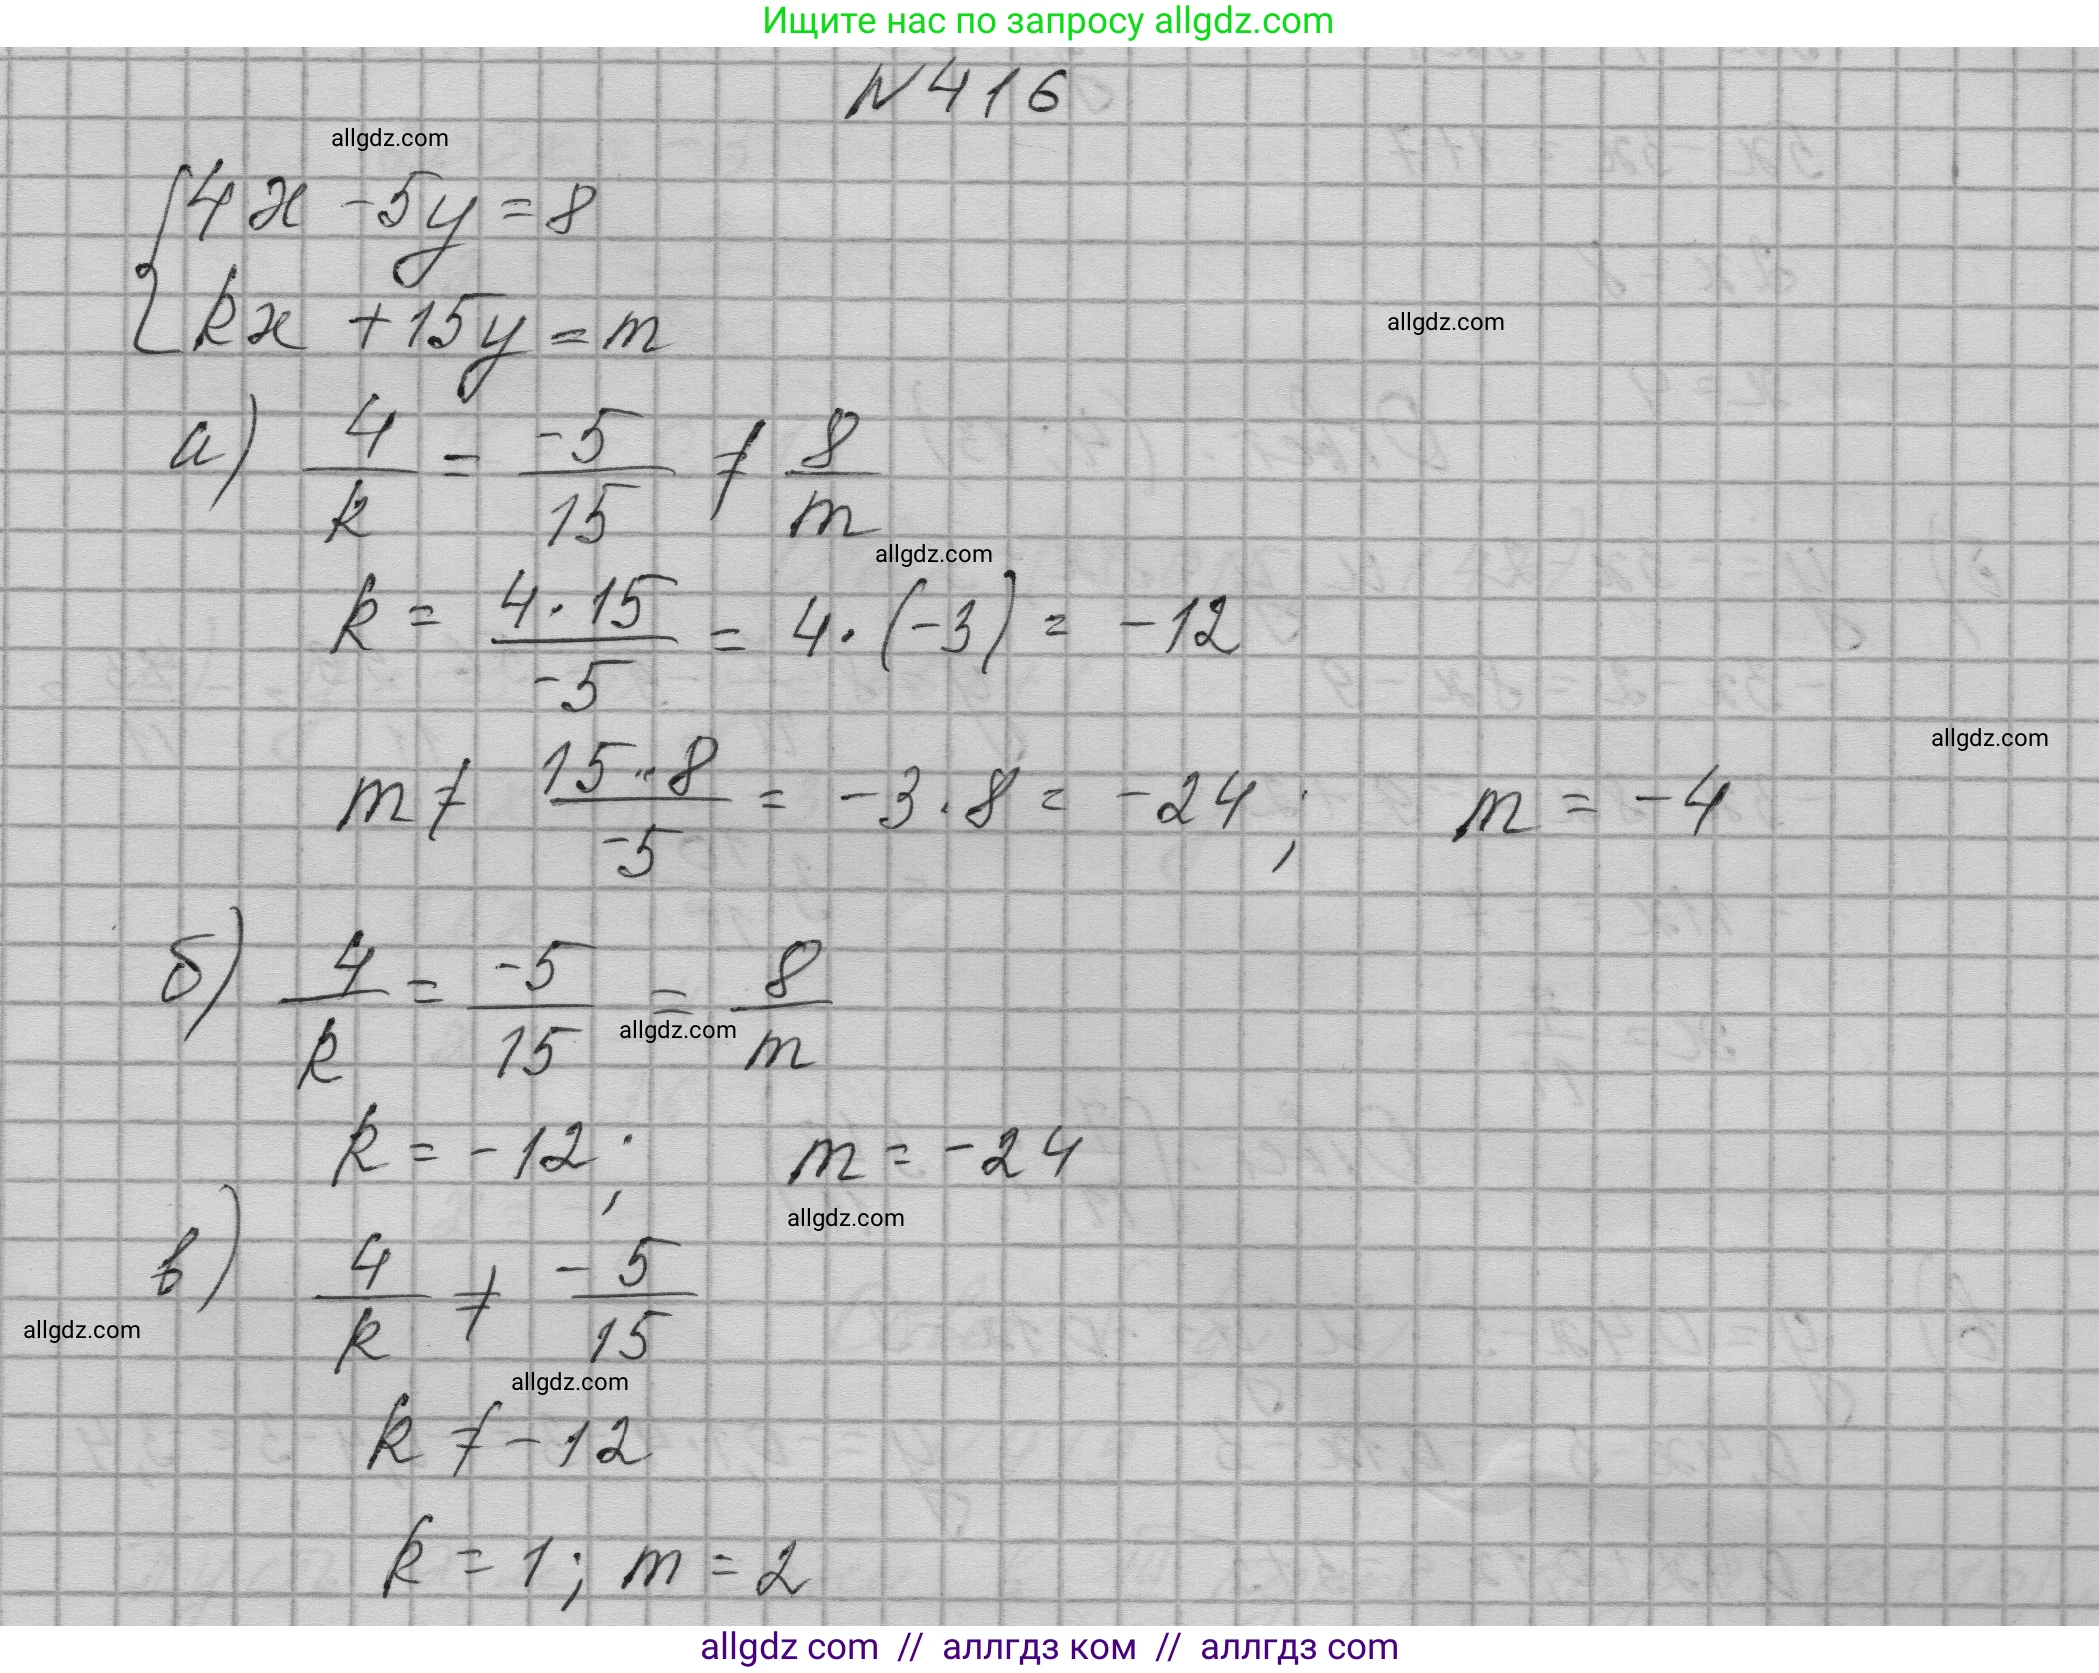 Ищите нас по запросу allgdz.com
N 416
allgdz.com
{ 4x - 5y = 8
kx + 15y = m
allgdz.com
а) 4/k = -5/15 ≠ 8/m
allgdz.com
k = 4·15/-5 = 4·(-3) = -12
allgdz.com
m ≠ 15·8/-5 = -3·8 = -24; m = -4
б) 4/k = -5/15 = 8/m
allgdz.com
k = -12; m = -24
allgdz.com
в) 4/k ≠ -5/15
allgdz.com
allgdz.com
k ≠ -12
k = 1; m = 2
allgdz com // аллгдз ком // аллгдз com